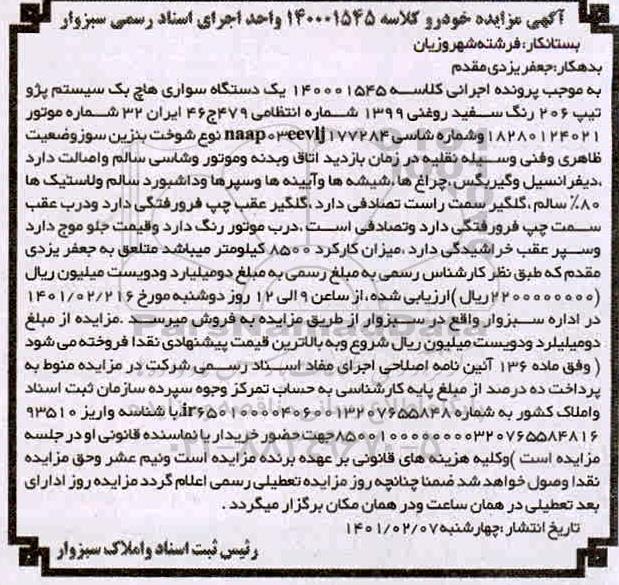 آگهی مزایده خودرو کلاسه ۱۴۰۰۰۱۵۴۵ واحد اجرای اسناد رسمی سبزوار
بستانکار: فرشته شهروزیان
بدهکار: جعفر یزدی مقدم
به موجب پرونده اجرائی کلاسه ۱۴۰۰۰۱۵۴۵ یک دستگاه سواری هاچ بک سیستم پژو
تیپ ۲۰۶ رنگ سفید روغنی ۱۳۹۹ شماره انتظامی ۴۷۹ج۴۶ ایران ۳۲ شماره موتور
۱۸۲۸۰۱۲۴۰۲۱ وشماره شاسی naap۰۳eevlj۱۷۷۲۸۴ نوع شوخت بنزین سوز وضعیت
ظاهری وفنی وسیله نقلیه در زمان بازدید اتاق وبدنه وموتور وشاسی سالم واصالت دارد
،دیفرانسیل وگیربگس ،چراغ ها ،شیشه ها وآیینه ها وسپرها وداشبورد سالم ولاستیک ها
۸۰٪ سالم ،گلگیر سمت راست تصادفی دارد ،گلگیر عقب چپ فرورفتگی دارد ودرب عقب
سمت چپ فرورفتگی دارد وتصادفی است ،درب موتور رنگ دارد وقیمت جلو موج دارد
وسپر عقب خراشیدگی دارد ،میزان کارکرد ۸۵۰۰ کیلومتر میباشد متلعق به جعفر یزدی
مقدم که طبق نظر کارشناس رسمی به مبلغ رسمی به مبلغ دومیلیارد ودویست میلیون ریال
(۲۲۰۰۰۰۰۰۰۰ریال )ارزیابی شده ،از ساعن ۹ الی ۱۲ روز دوشنبه مورخ ۱۴۰۱/۰۲/۲۱۶
در اداره سبزوار واقع در سبزوار از طریق مزایده به فروش میرسد .مزایده از مبلغ
دومیلیلرد ودویست میلیون ریال شروع وبه بالاترین قیمت پیشنهادی نقدا فروخته می شود
( وفق ماده ۱۳۶ آئین نامه اصلاحی اجرای مفاد اسناد رسمی شرکت در مزایده منوط به
پرداخت ده درصد از مبلغ پایه کارشناسی به حساب تمرکز وجوه سپرده سازمان ثبت اسناد
واملاک کشور به شماره ir۶۵۰۱۰۰۰۰۴۰۶۰۰۱۳۲۰۷۶۵۵۸۴۸۰ با شناسه واریز ۹۳۵۱۰
۸۵۰۰۱۰۰۰۰۰۰۰۰۳۲۰۷۶۵۵۸۴۸۱۶جهت حضور خریدار یا نماسنده قانونی او در جلسه
مزایده است )وکلیه هزینه های قانونی بر عهده برنده مزایده است ونیم عشر وحق مزایده
نقدا وصول خواهد شد ضمنا چنانچه روز مزایده تعطیلی رسمی اعلام گردد مزایده روز ادارای
بعد تعطیلی در همان ساعت ودر همان مکان برگزار میگردد .
تاریخ انتشار :چهارشنبه ۱۴۰۱/۰۲/۰۷
رئیس ثبت اسناد واملاک سبزوار
ParsNamadData